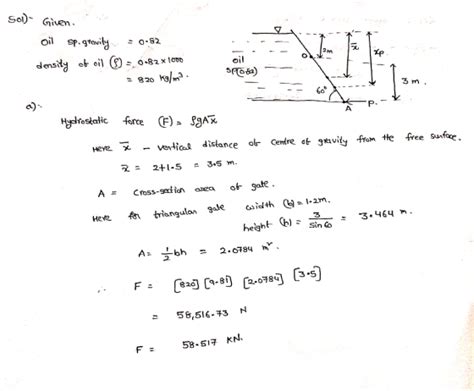 Sol)- Given.
Oil sp.gravity = 0.82
density of oil (ρ) = 0.82 x 1000
= 820 kg/m³.
oil
SP(0.82)
o
2m
x̄
xp
3 m.
60°
P.
A
a):-
Hydrostatic force (F) = ρgAx̄
Here x̄ - vertical distance of centre of gravity from the free surface.
x̄ = 2+1.5 = 3.5 m.
A = cross-section area of gate.
Here for triangular gate width (b) = 1.2m.
height (h) = 3/sin60 = 3.464 m.
A = 1/2 bh = 2.0784 m².
∴ F = [820] [9.81] [2.0784] [3.5]
= 58,516.73 N
F = 58.517 KN.